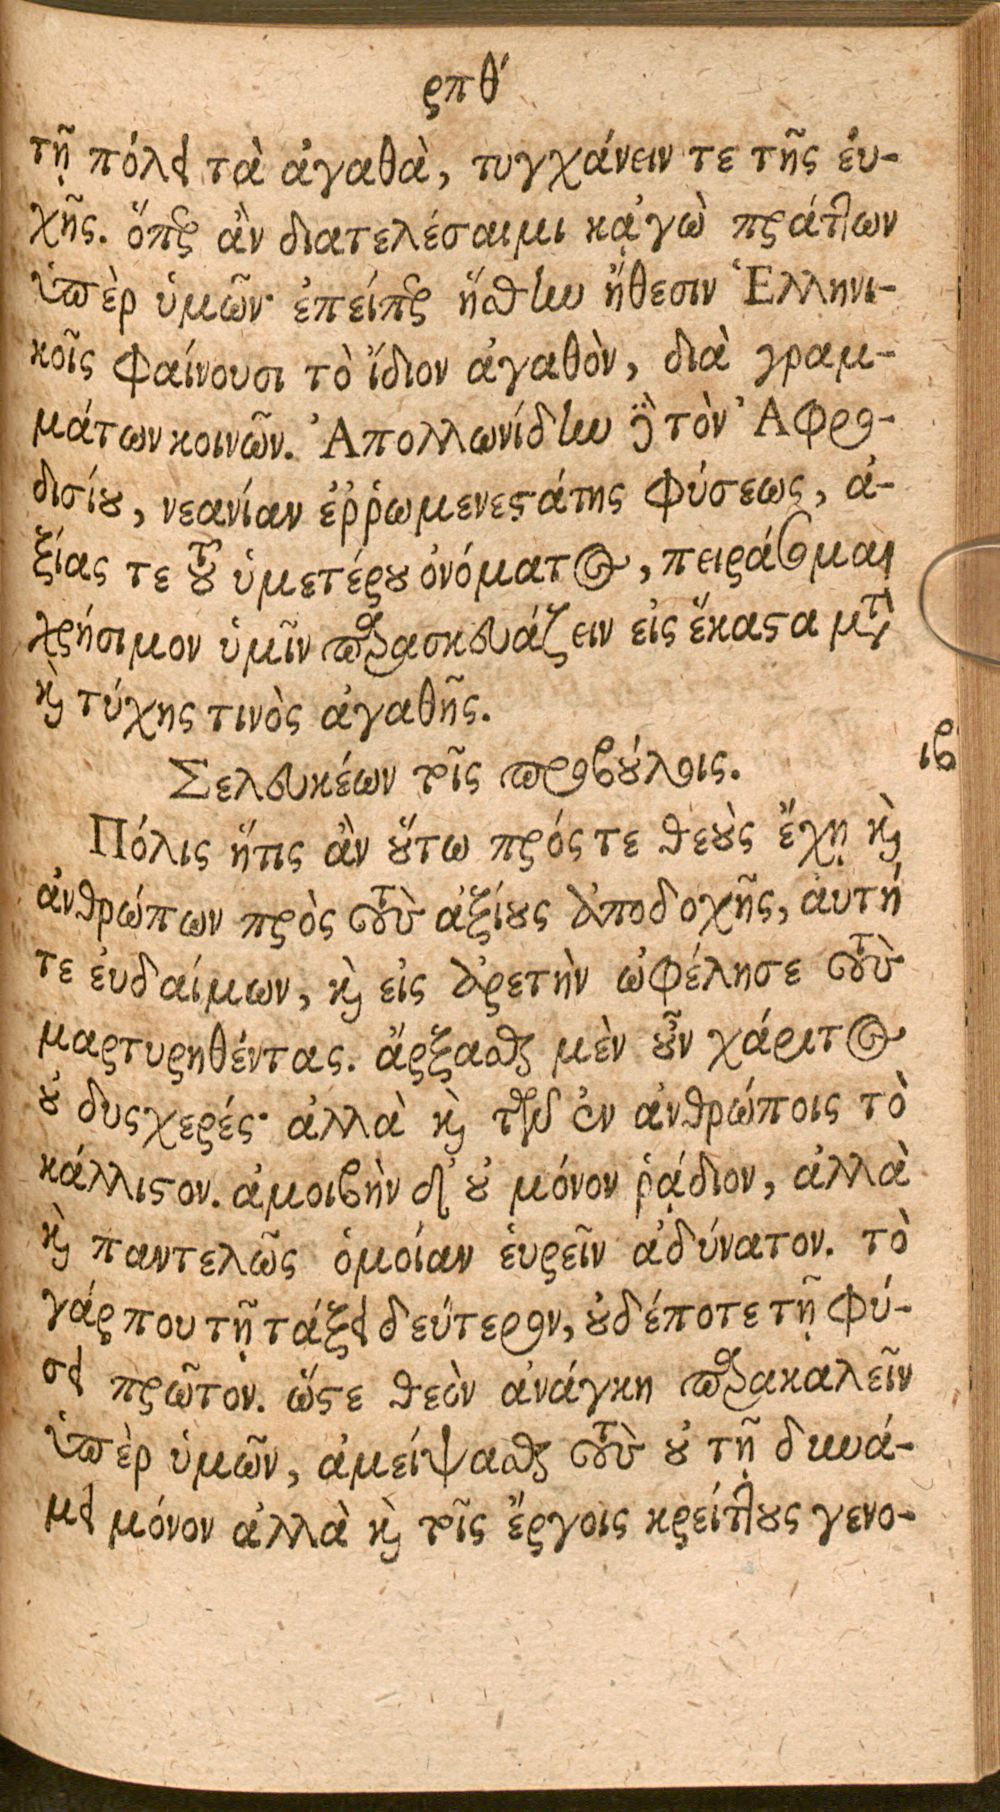 ρπθ´
τῇ πόλει τὰ ἀγαθὰ, τυγχάνειν τε τῆς ἐυ-
χῆς. ὅπερ ἂν διατελέσαιμι κᾀγὼ πράττων
ὑπὲρ ὑμῶν· ἐπείπερ ἤσθην ἤθεσιν Ἑλληνι-
κοῖς φαίνουσι τὸ ἴδιον ἀγαθὸν, διὰ γραμ-
μάτων κοινῶν. Ἀπολλωνίδην δὲ τὸν Ἀφρο-
δισίου, νεανίαν ἐῤῥωμενεστάτης φύσεως, ἀ-
ξίας τε τοῦ ὑμετέρου ὀνόματος, πειράσομαι
χρήσιμον ὑμῖν παρασκευάζειν εἰς ἕκαστα μετὰ
καὶ τύχης τινὸς ἀγαθῆς.
Σελευκέων τοῖς προβούλοις.
ιβ
Πόλις ἥτις ἂν οὕτω πρός τε θεοὺς ἔχῃ καὶ
ἀνθρώπων πρὸς τοὺς ἀξίους ἀποδοχῆς, ἀυτή
τε ἐυδαίμων, καὶ εἰς ἀρετὴν ὠφέλησε τοὺς
μαρτυρηθέντας. ἄρξασθαι μὲν οὖν χάριτος
οὐ δυσχερές· ἀλλὰ καὶ τῶν ἐν ἀνθρώποις τὸ
κάλλιστον. ἀμοιβὴν δ' οὐ μόνον ῥᾴδιον, ἀλλὰ
καὶ παντελῶς ὁμοίαν ἑυρεῖν ἀδύνατον. τὸ
γάρ που τῇ τάξει δεύτερον, οὐδέποτε τῇ φύ-
σει πρῶτον. ὥστε θεὸν ἀνάγκη παρακαλεῖν
ὑπὲρ ὑμῶν, ἀμείψασθαι τοὺς οὐ τῇ δυνά-
μει μόνον ἀλλὰ καὶ τοῖς ἔργοις κρείττους γενο-